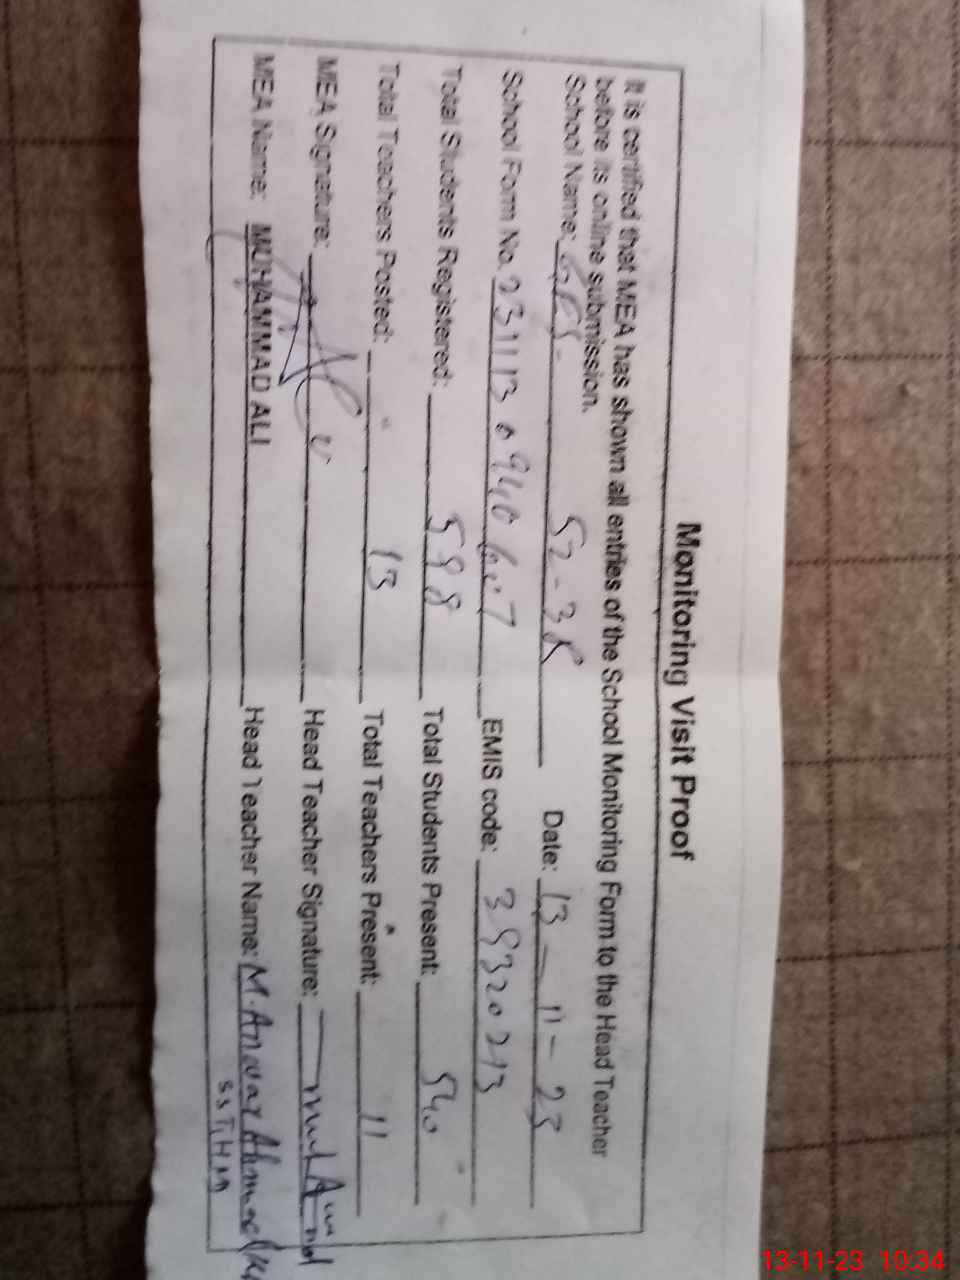 Monitoring Visit Proof
It is certified that MEA has shown all entries of the School Monitoring Form to the Head Teacher
before its online submission.
School Name: GES - 52-3R Date: 13-11-23
School Form No. EMIS code: 39320213
Total Students Registered: 598 Total Students Present: 540
Total Teachers Posted: 13 Total Teachers Present: 11
MEA Signature: Head Teacher Signature:
MEA Name: MUHAMMAD ALI Head Teacher Name: M. Anwar Ahmad
SST, HM
13-11-23 10:34